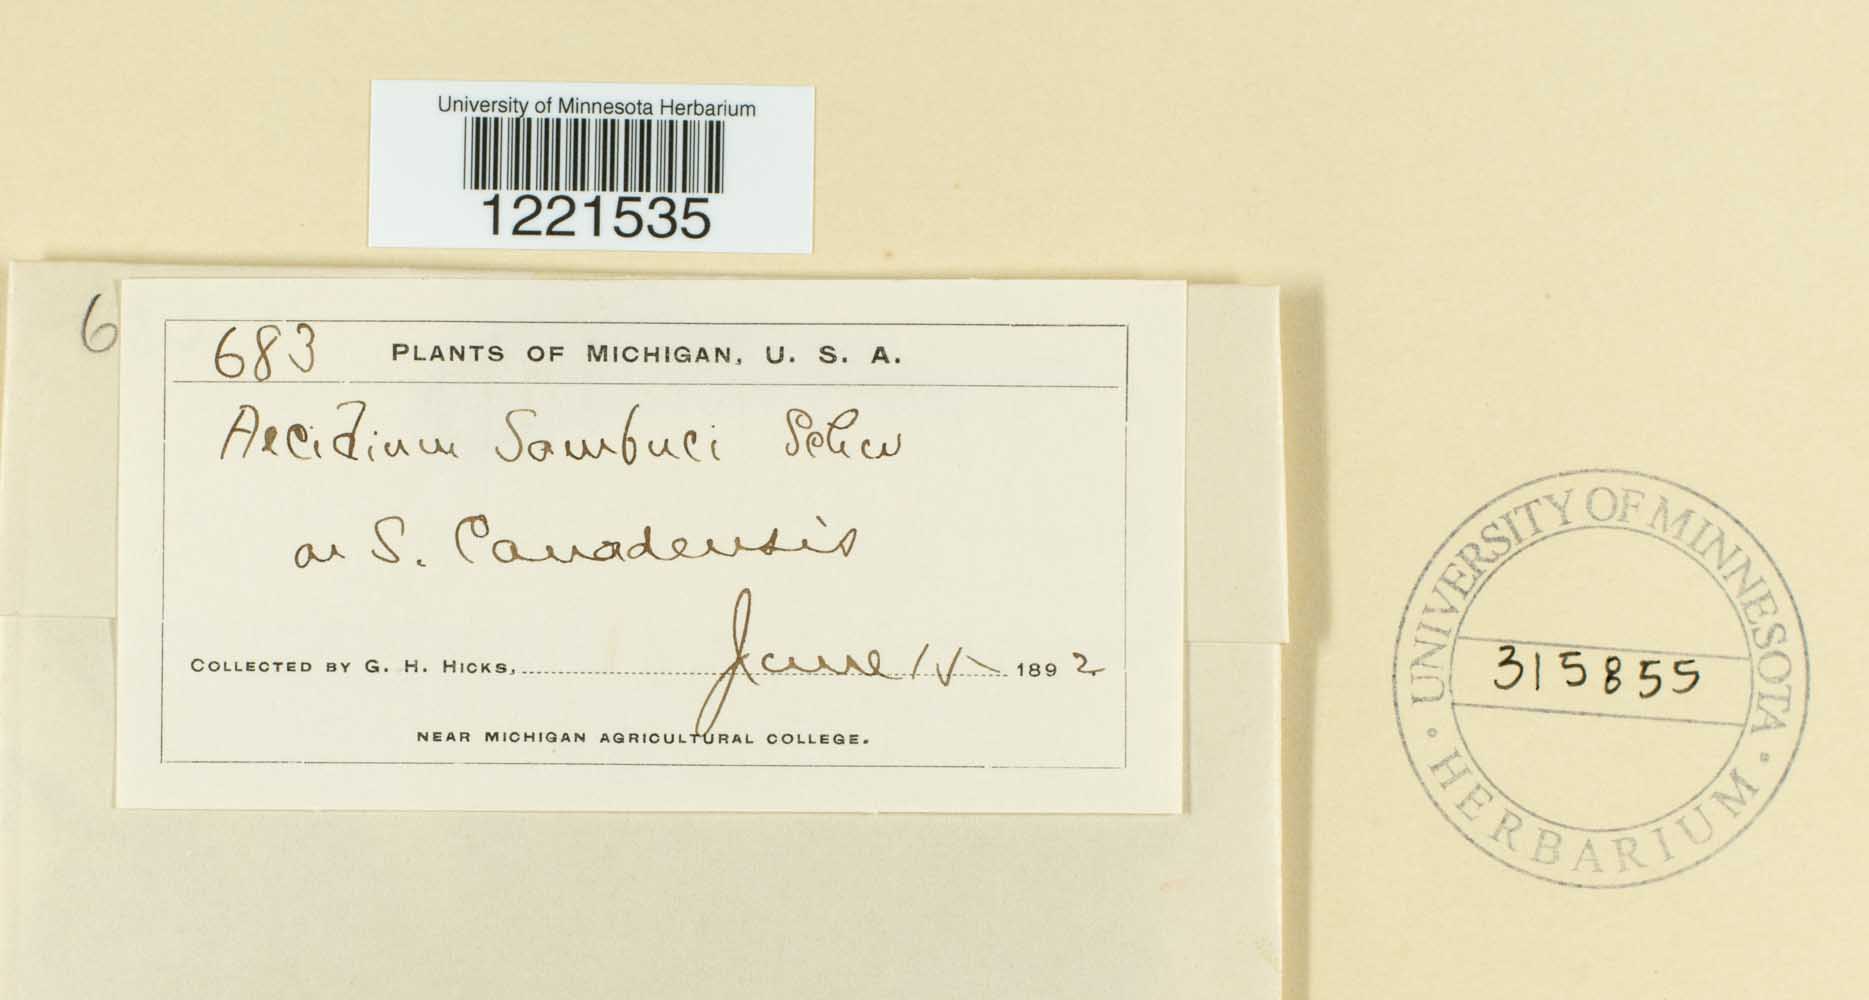 University of Minnesota Herbarium
1221535
6
683
PLANTS OF MICHIGAN, U. S. A.
Aecidium Sambuci Schw
on S. Canadensis
COLLECTED BY G. H. HICKS, June 15 1892
NEAR MICHIGAN AGRICULTURAL COLLEGE.
UNIVERSITY OF MINNESOTA
315855
HERBARIUM